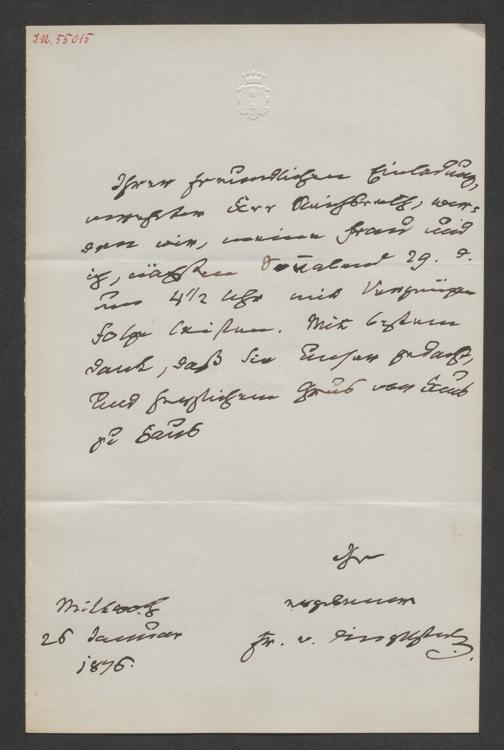 I.N. 55015
Ihrer freundlichen Einladung,
verehrter Herr Reichsrath, wer-
den wir, meine Frau und
ich, nächsten Sonnabend 29. d.
um 4 1/2 Uhr mit Vergnügen
Folge leisten. Mit bestem
Dank, daß Sie Unser gedacht,
und herzlichem Gruß von Haus
zu Haus
Ihr
ergebener
Fr. v. Dingelstedt
Mittwoch
26 Januar
1876.